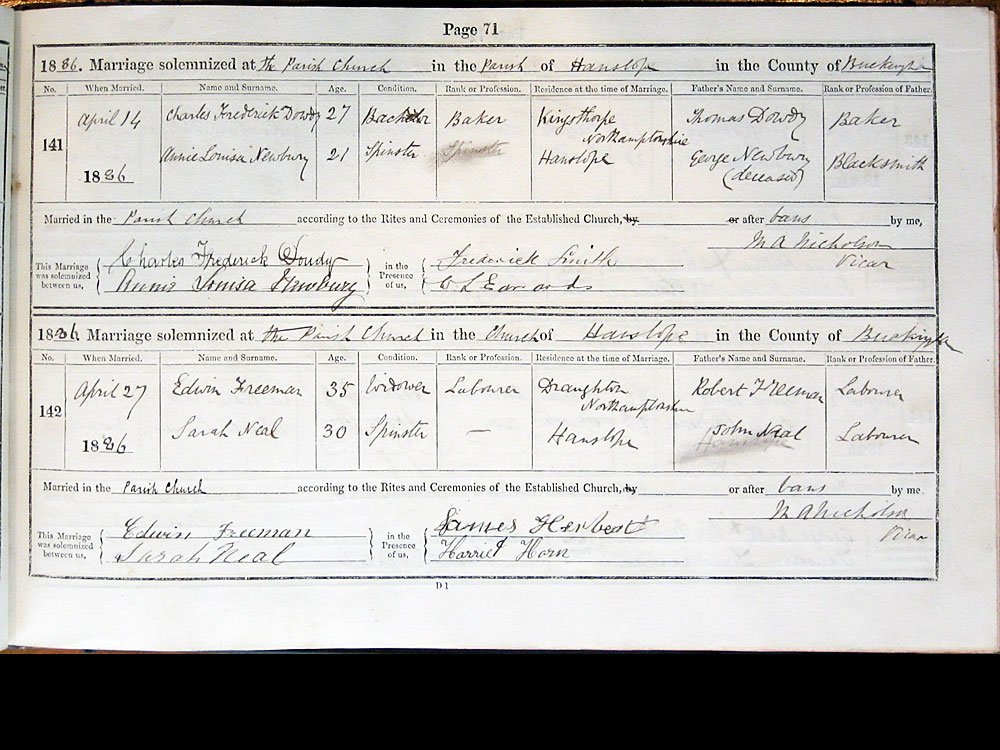 Page 71
1886. Marriage solemnized at the Parish Church in the Parish of Hanslope in the County of Buckingham
No. When Married. Name and Surname. Age. Condition. Rank or Profession. Residence at the time of Marriage. Father's Name and Surname. Rank or Profession of Father.
April 14 Charles Frederick Dowdy 27 Bachelor Baker Kingsthorpe Northamptonshire Thomas Dowdy Baker
141
1886 Annie Louisa Newbury 21 Spinster Spinster Hanslope George Newbury (deceased) Blacksmith
Married in the Parish Church according to the Rites and Ceremonies of the Established Church, by or after bans by me,
M A Nicholson
Vicar
This Marriage was solemnized between us, Charles Frederick Dowdy in the Presence of us, Frederick Smith
Annie Louisa Newbury
1886. Marriage solemnized at the Parish Church in the Church of Hanslope in the County of Buckingham
No. When Married. Name and Surname. Age. Condition. Rank or Profession. Residence at the time of Marriage. Father's Name and Surname. Rank or Profession of Father.
April 27 Edwin Freeman 35 Widower Labourer Draughton Northamptonshire Robert Freeman Labourer
142
1886 Sarah Neal 30 Spinster — Hanslope John Neal Labourer
Married in the Parish Church according to the Rites and Ceremonies of the Established Church, by or after bans by me.
M A Nicholson
Vicar
This Marriage was solemnized between us, Edwin Freeman in the Presence of us, James Herbert
Sarah Neal Harriet Horn
D 1